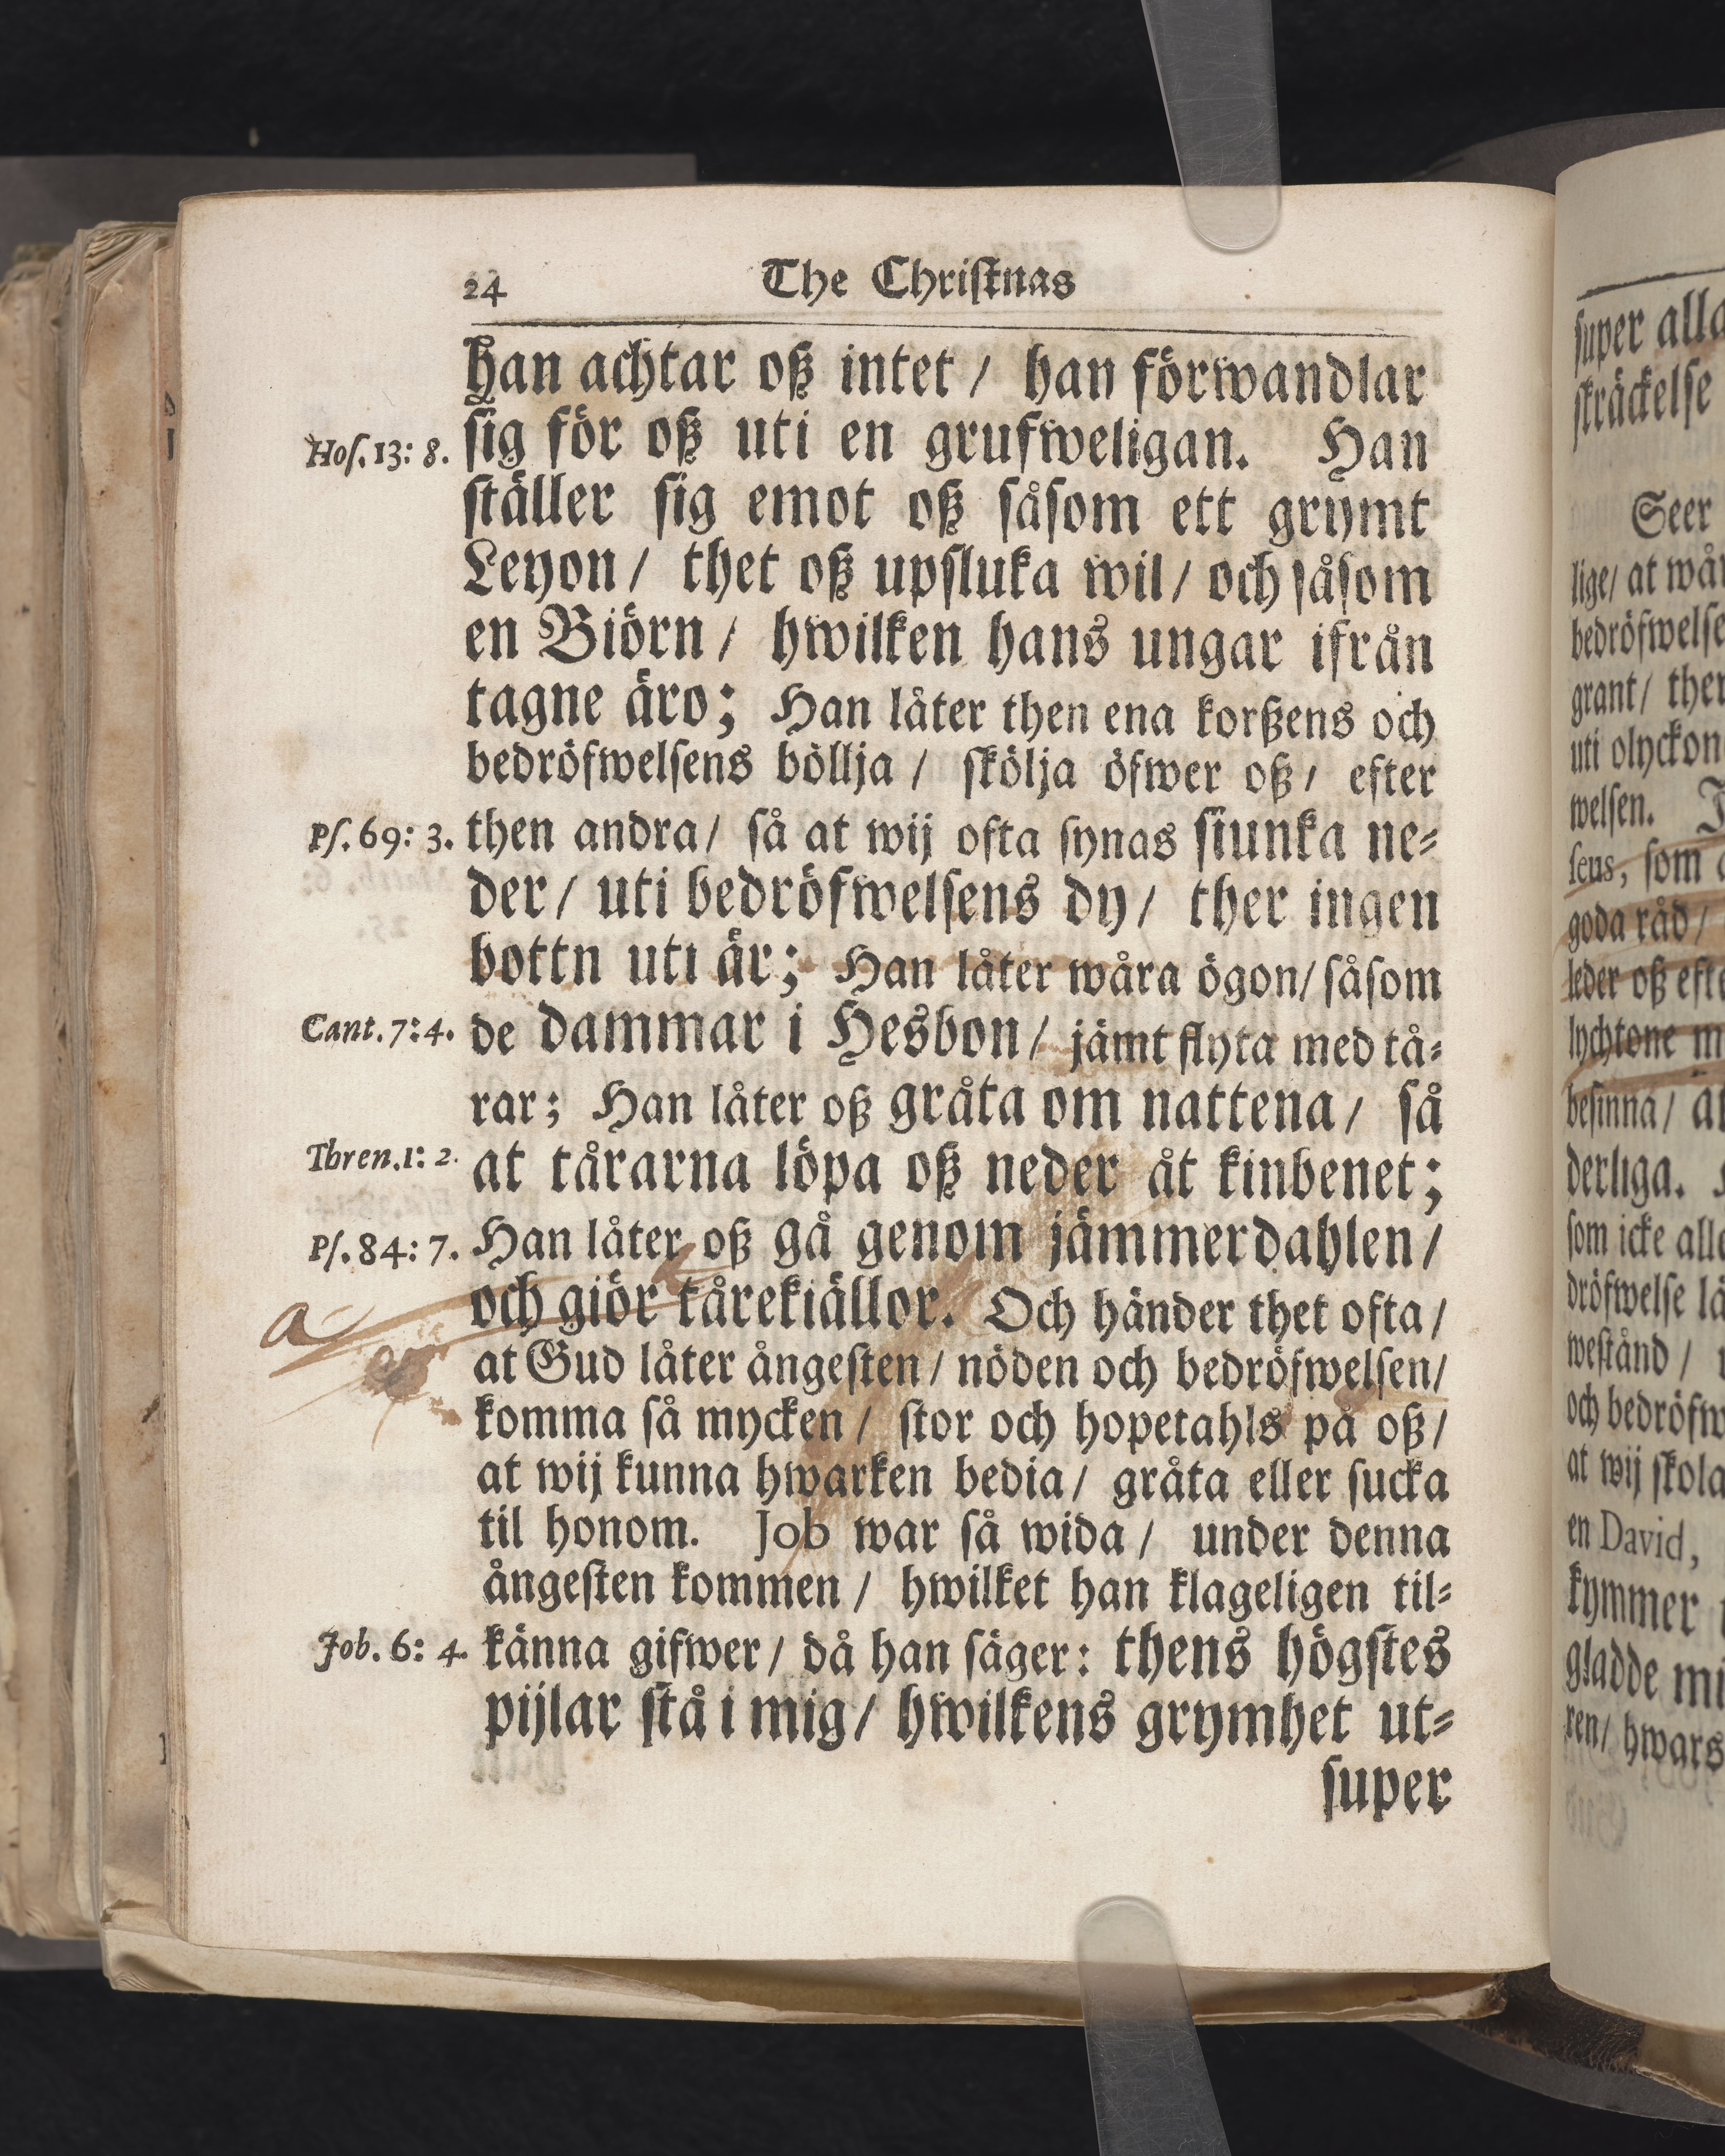 24 The Christnas
han achtar oß intet / han förwandlar
Hos. 13: 8. sig för oß uti en grufweligan. Han
ställer sig emot oß såsom ett grymt
Leyon / thet oß upsluka wil / och såsom
en Biörn / hwilken hans ungar ifrån
tagne äro; Han låter then ena korßens och
bedröfwelsens böllja / skölja öfwer oß / efter
Ps. 69: 3. then andra / så at wij ofta synas siunka ne=
der / uti bedröfwelsens dy / ther ingen
bottn uti är; Han låter wåra ögon / såsom
Cant. 7: 4. de dammar i Hesbon / jämt flyta med tå=
rar; Han låter oß gråta om nattena / så
Thren. 1: 2. at tårarna löpa oß neder åt kinbenet;
Ps. 84: 7. Han låter oß gå genom jämmerdahlen /
a och giör tårekiällor. Och händer thet ofta /
at Gud låter ångesten / nöden och bedröfwelsen /
komma så mycken / stor och hopetahls på oß /
at wij kunna hwarken bedia / gråta eller sucka
til honom. Job war så wida / under denna
ångesten kommen / hwilket han klageligen til=
Job. 6: 4. känna gifwer / då han säger: thens högstes
pijlar stå i mig / hwilkens grymhet ut=
super
super alla
skräckelse
Seer
lige / at wår
bedröfwelse
grant / ther
uti olyckon
welsen.
sens, som
goda råd /
leder oß efte
lychtone m
besinna /
derliga.
som icke alle
dröfwelse lå
westånd /
och bedröfw
at wij skola
en David,
kymmer
gladde mi
ren / hwars